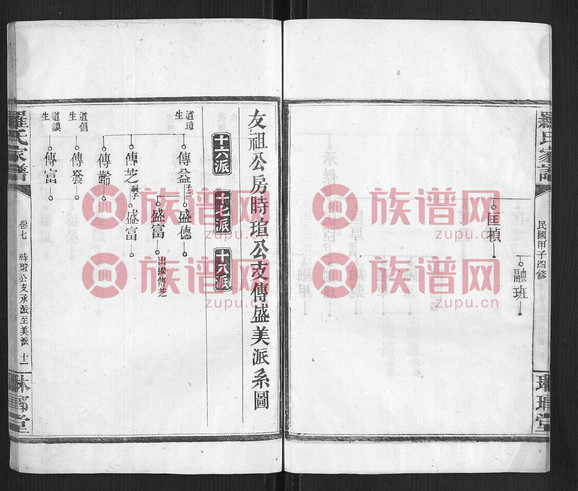 民國甲子四修
融班
匡楨
友祖公房時瑄公支傳盛美派系圖
十六派 十七派 十八派
道璋生
傳益
盛德
盛富 出繼傳芝
傳芝
盛富
傳齡
道倡生
傳發
道謨生
傳富
羅氏家譜
卷七
時瑄公支承派至美派 十一
族谱网
zupu.cn
族谱网
zupu.cn
族谱网
zupu.cn
族谱网
zupu.cn